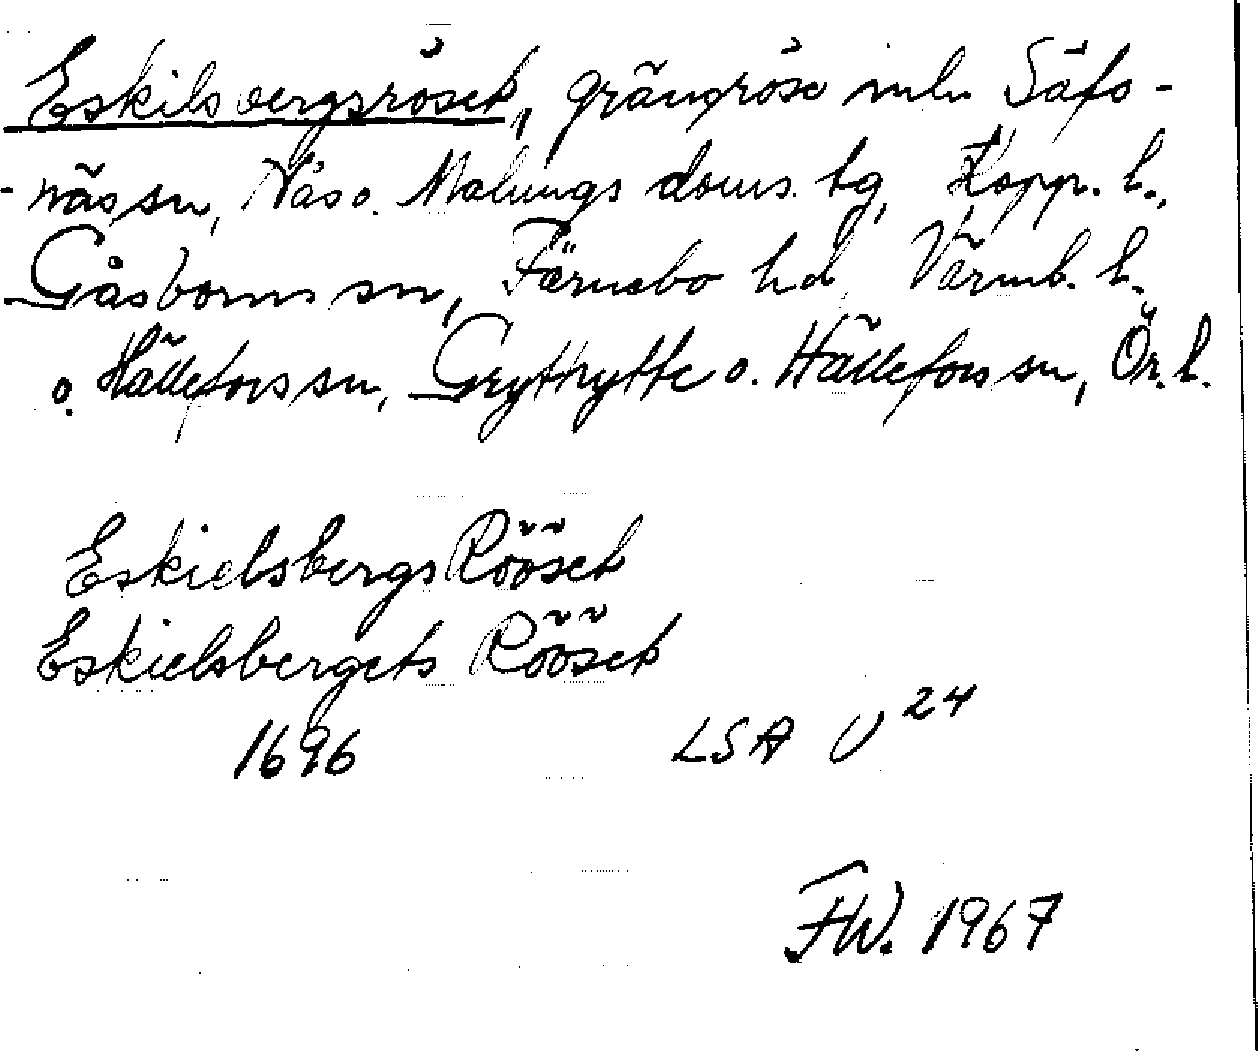 Eskilsbergsröset, gränsröse mln Säfs-
-näs sn, Nås o. Malungs doms. tg, Kopp. l.,
Gåsborns sn, Färnebo hd, Värml. l.
o. Hällefors sn, Grythytte o. Hällefors sn, Ör. l.
Eskielsbergs Rööset
Eskielsbergets Rööset
1696 LSA U 24
FW. 1967